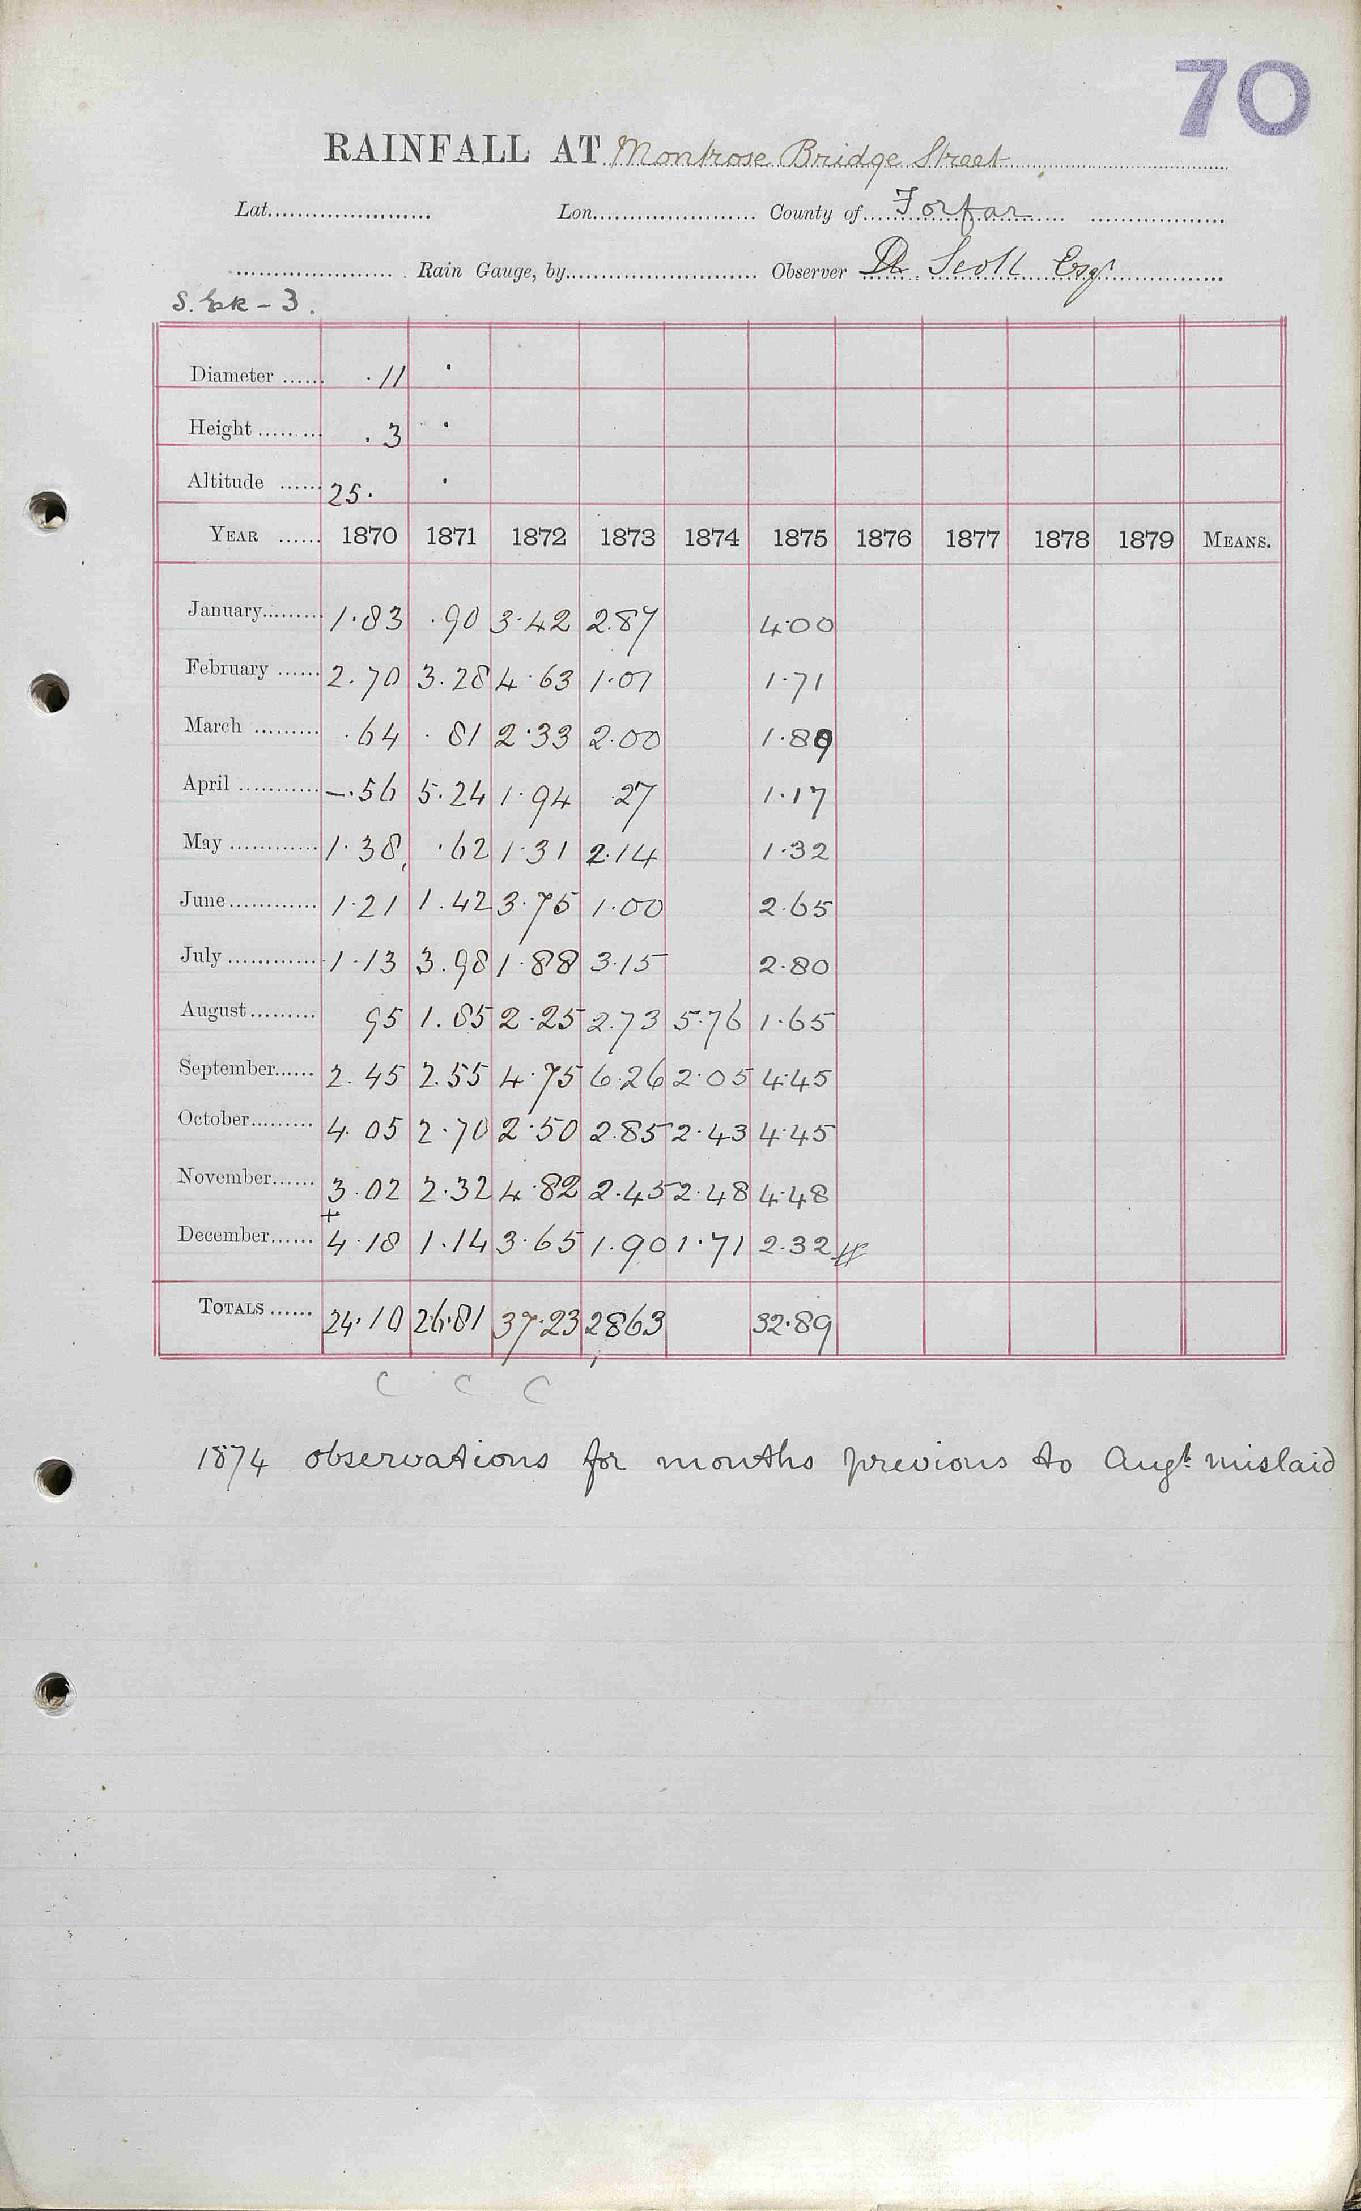 70
RAINFALL AT Montrose Bridge Street
Lat. Lon. County of Forfar
Rain Gauge, by Observer Dr Scott Esqr
S. Esk - 3.
Diameter ...... .11 .
Height ......... .3 .
Altitude ...... 25. .
YEAR ...... 1870 1871 1872 1873 1874 1875 1876 1877 1878 1879 MEANS.
January......... 1.83 .90 3.42 2.87 4.00
February ...... 2.70 3.28 4.63 1.01 1.71
March ......... .64 .81 2.33 2.00 1.89
April ............ -.56 5.24 1.94 .27 1.17
May ............ 1.38 .62 1.31 2.14 1.32
June............ 1.21 1.42 3.75 1.00 2.65
July ............ 1.13 3.98 1.88 3.15 2.80
August......... 95 1.85 2.25 2.73 5.76 1.65
September...... 2.45 2.55 4.75 6.26 2.05 4.45
October......... 4.05 2.70 2.50 2.85 2.43 4.45
November...... 3.02 2.32 4.82 2.45 2.48 4.48
December...... + 4.18 1.14 3.65 1.90 1.71 2.32
TOTALS ...... 24.10 26.81 37.23 2863 32.89
C C C
1874 observations for months previous to Augt mislaid